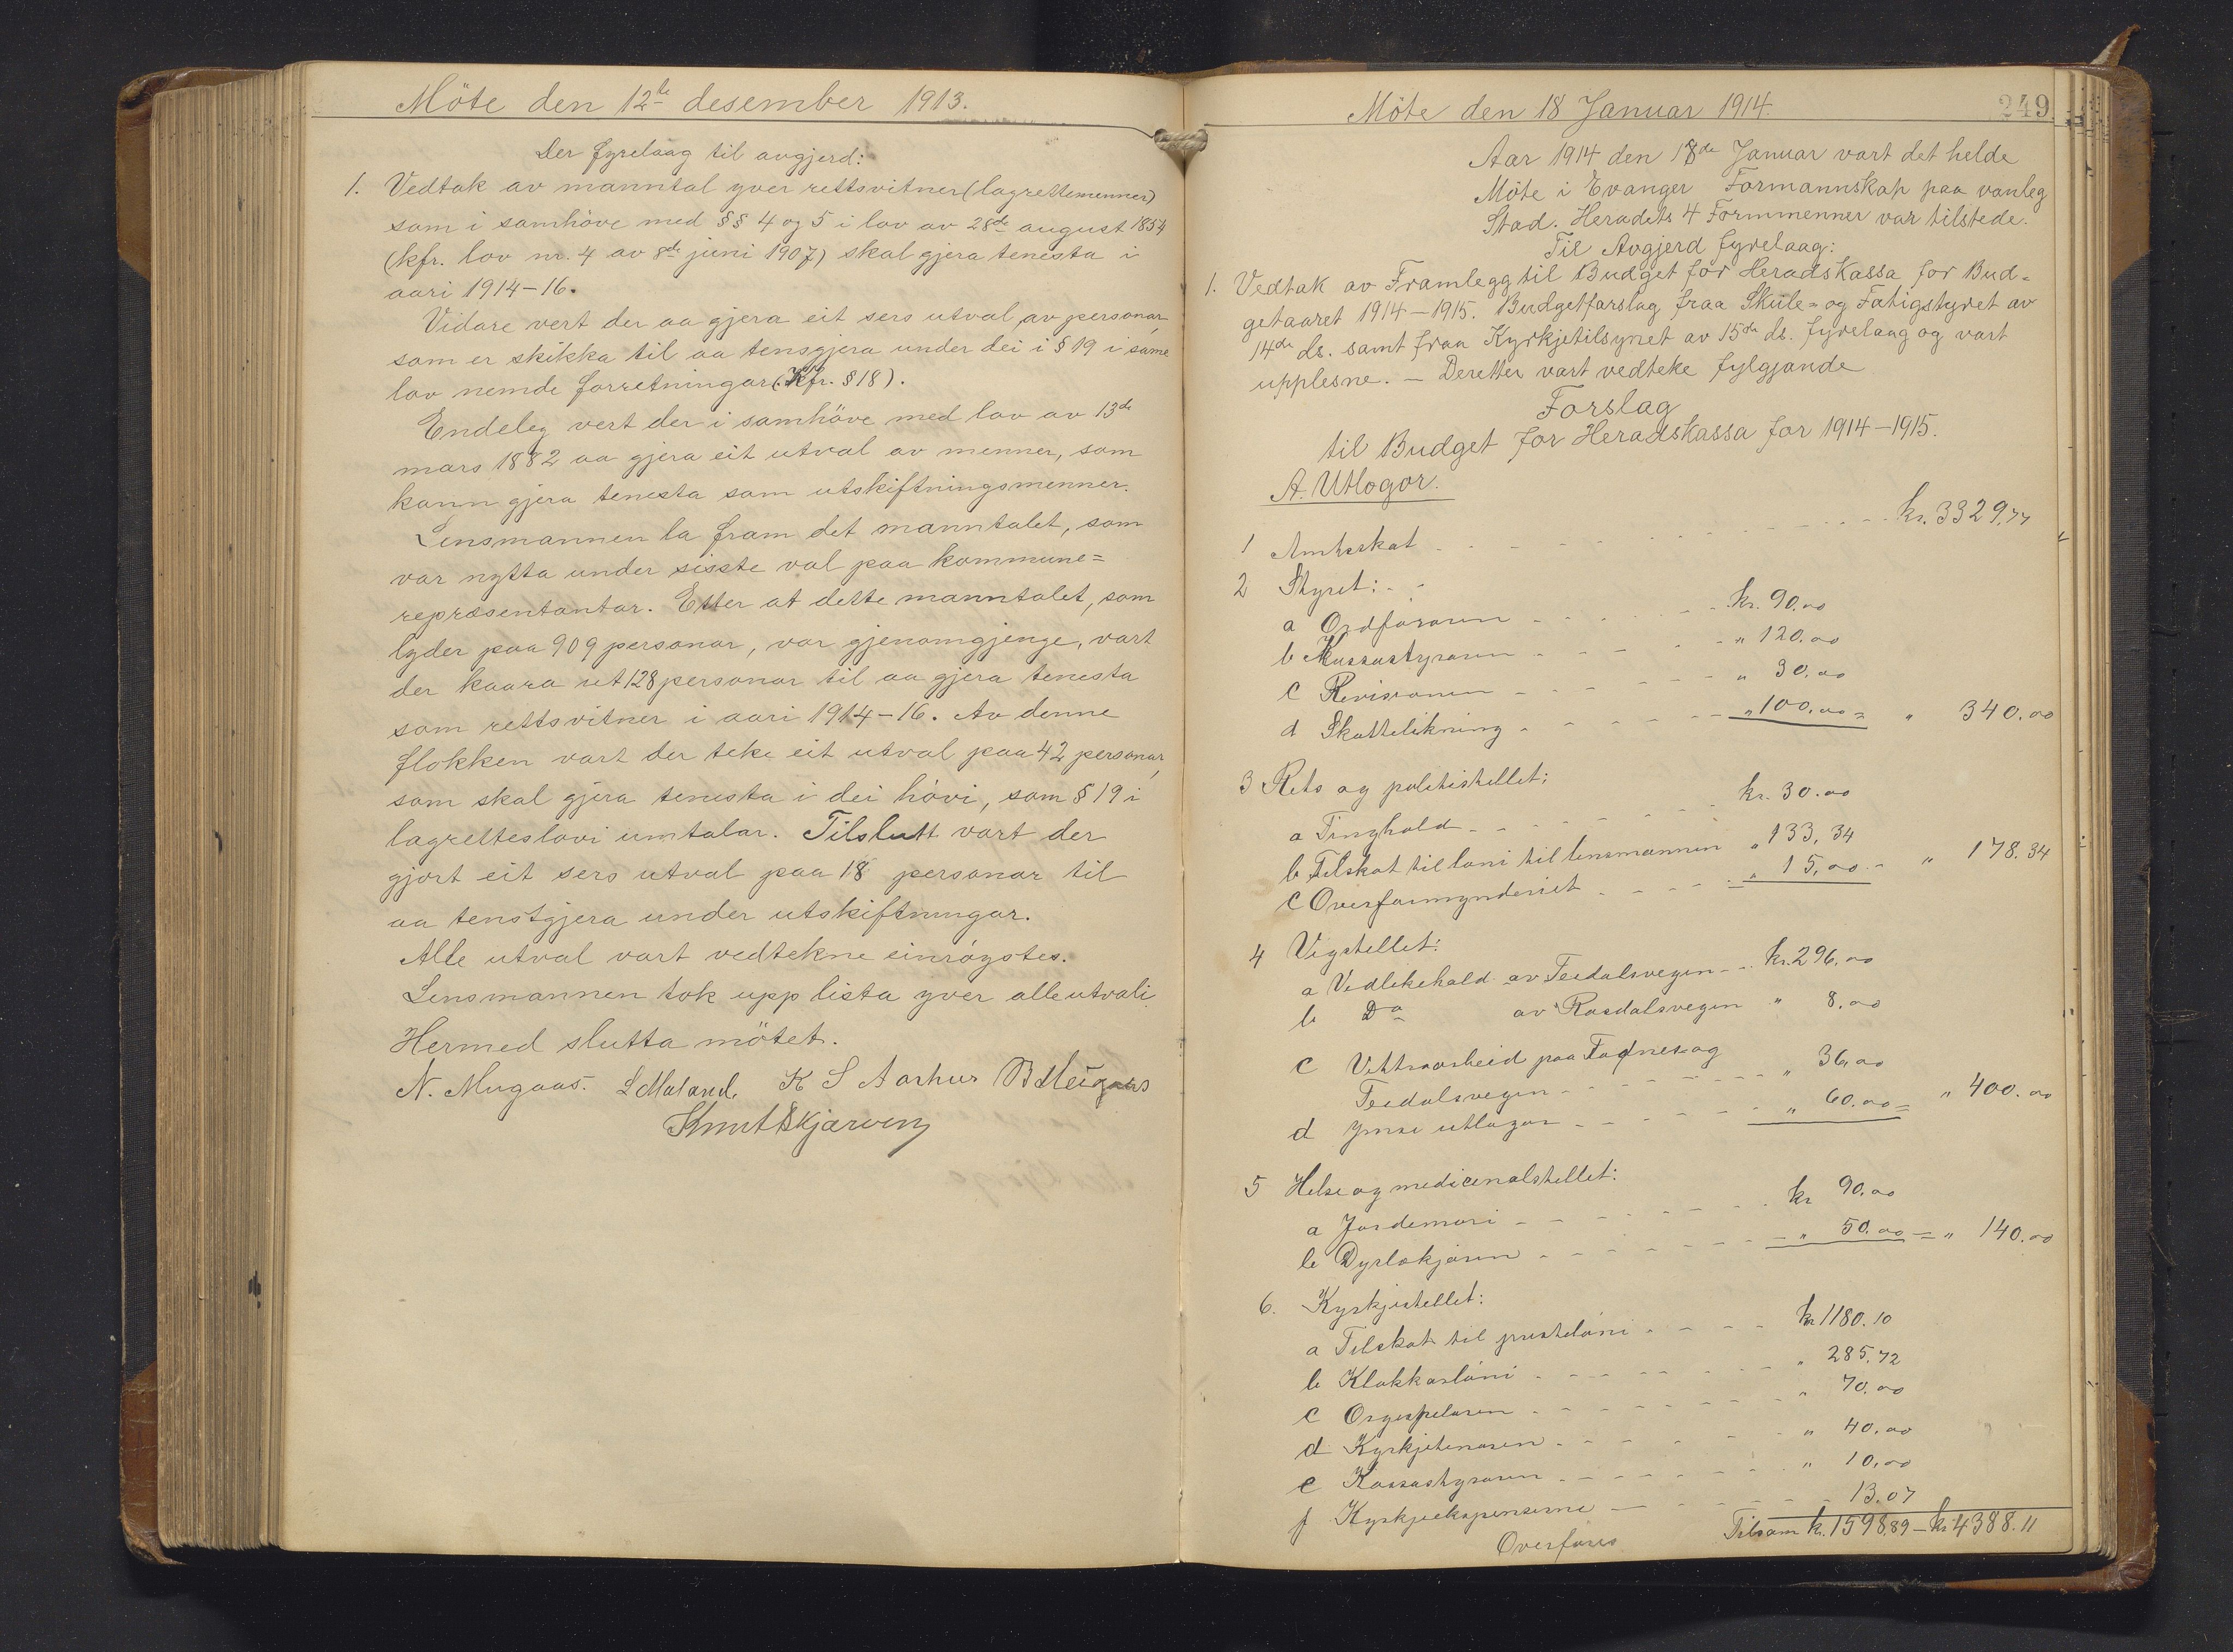 Möte den 12te desember 1913.
Der fyrelaag til avgjerd:
1. Vedtak av manntal yver rettsvitner (lagrettemenner)
som i samhöve med §§ 4 og 5 i lov av 28de august 1854
(kfr. lov nr. 4 av 8de juni 1907) skal gjera tenesta i
aari 1914-16.
Vidare vert der aa gjera eit sers utval av personar,
som er skikka til aa tensgjera under dei i § 19 i same
lov nemde forretningar (Kfr. § 18).
Endeleg vert der i samhöve med lov av 13de
mars 1882 aa gjera eit utval av menner, som
kann gjera tenesta som utskiftningsmenner.
Lensmannen la fram det manntalet, som
var nytta under sisste val paa kommune=
repræsentantar. Etter at dette manntalet, som
lyder paa 909 personar, var gjenomgjenge, vart
der kaara ut 128 personar til aa gjera tenesta
som rettsvitner i aari 1914-16. Av denne
flokken vart der teke eit utval paa 42 personar,
som skal gjera tenesta i dei hövi, som § 19 i
lagretteslovi umtalar. Tilslutt vart der
gjort eit sers utval paa 18 personar til
aa tenstgjera under utskiftningar.
Alle utval vart vedtekne einröystes.
Lensmannen tok upp lista yver alle utvali.
Hermed slutta mötet.
N. Mugaas. L Maland. K S Aarhus B Meugaas
Knut Skjærven
Möte den 18 Januar 1914. 249
Aar 1914 den 18de Januar vart det helde
Möte i Evanger Formannskap paa vanleg
Stad. Heradets 4 Formmenner var tilstede.
Til Avgjerd fyrelaag:
1. Vedtak av Framlegg til Budget for Heradskassa for Bud=
getaaret 1914-1915. Budgetforslag fraa Skule= og Fatigstyret av
14de ds. samt fraa Kyrkjetilsynet av 15de ds. fyrelaag og vart
upplesne. - Deretter vart vedteke fylgjande
Forslag
til Budget for Heradskassa for 1914-1915.
A. Utlogor.
1 Amtsskat kr. 3329,77
2 Styret:
a Ordföraren kr. 90.00
b Kassastyraren " 120.00
c Revisionen " 30,00
d Skattelikning " 100,00 = " 340,00
3 Rets og politistellet:
a Tinghald kr. 30.00
b Tilskot til löni til lensmannen " 133,34
c Overformynderiet " 15,00 - " 178.34
4 Vegstellet:
a Vedlikehald av Teedalsvegen kr. 296,00
b Do av Rasdalsvegen " 8,00
c Vettraarbeid paa Fadnes og
Teedalsvegen " 36,00
d Ymse utlogor " 60.00 = " 400.00
5 Helse og medicinalstellet:
a Jordemori kr 90,00
b Dyrlækjaren " 50.00 = " 140.00
6. Kyrkjestellet:
a Tilskot til presteløni kr 1180.10
b Klokkarlöni " 285,72
c Orgespelaren " 70,00
d Kyrkjetenaren " 40,00
e Kassastyraren " 10,00
f Kyrkjeekspenserne 13.07
Overföres Tilsam k. 1598,89 - kr 4388.11